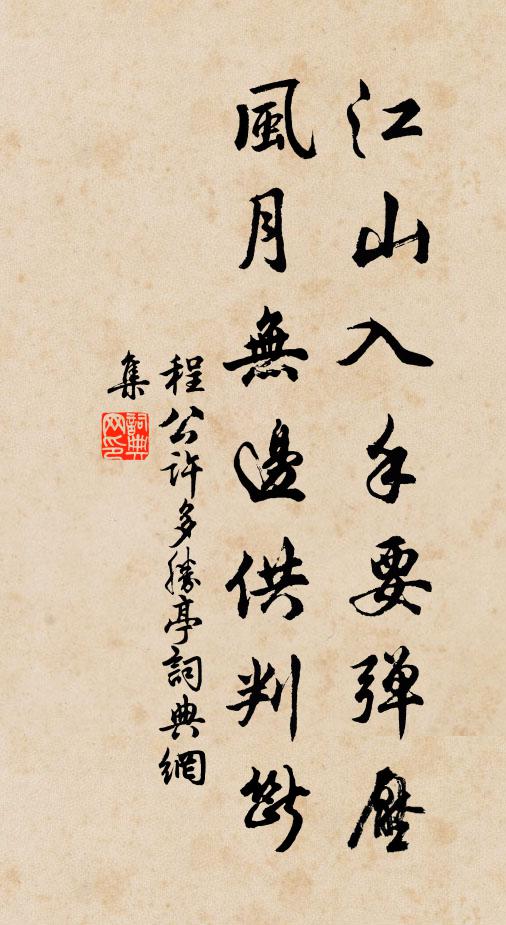 江山入手要弹壓
風月無邊供判斷
程公許多勝亭詞典網
集
詞典網印